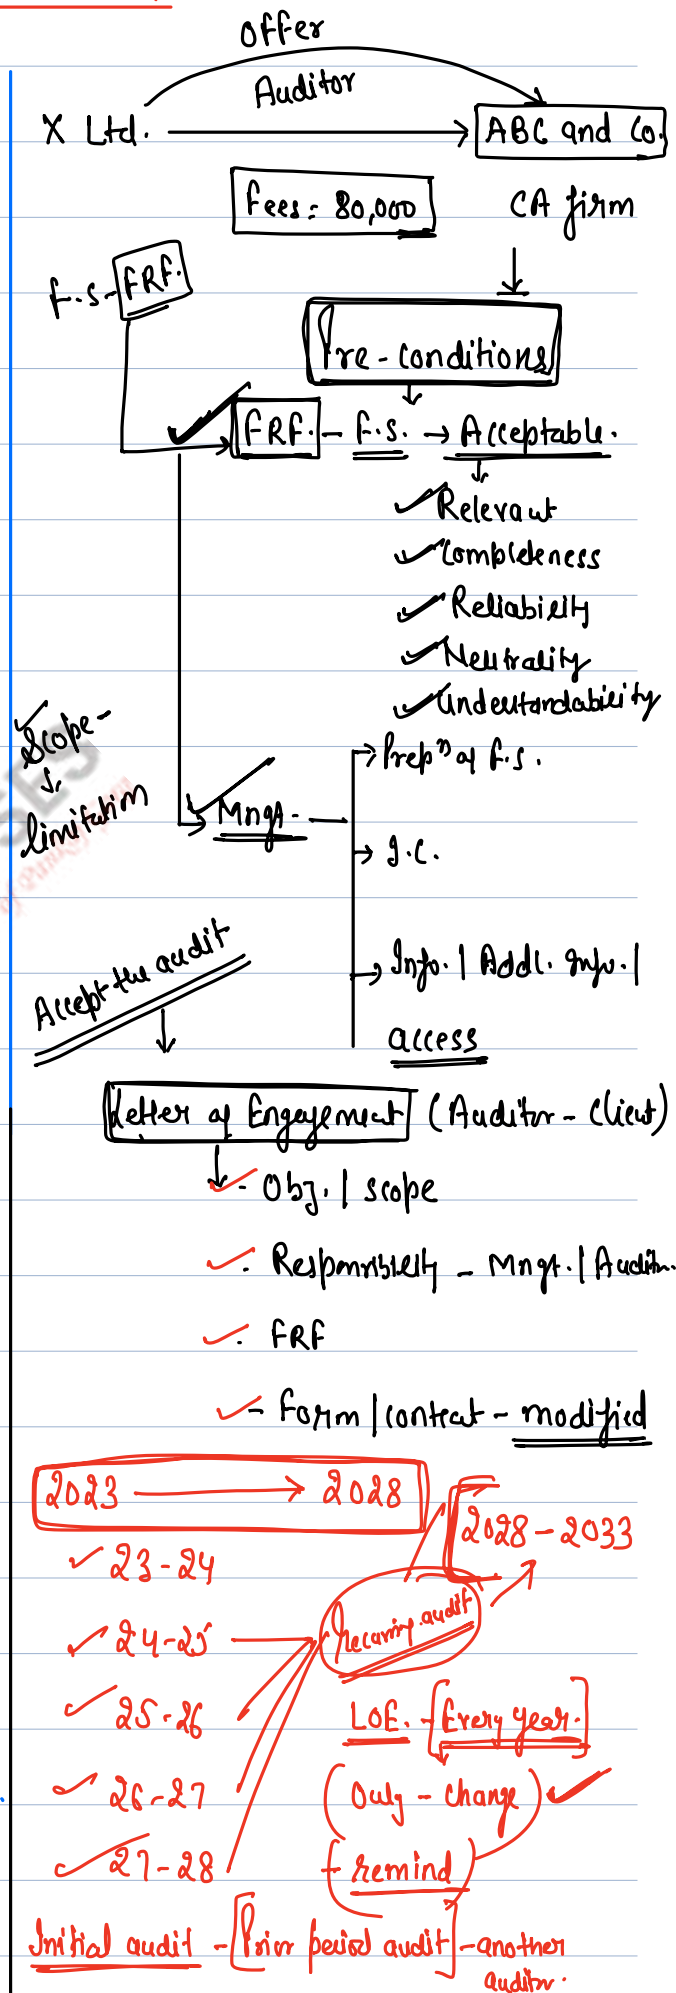 Offer
Auditor
X Ltd.
ABC and Co.
Fees = 80,000
CA firm
F.S - FRF.
Pre-conditions
FRF. - F.S. → Acceptable.
Relevant
Completeness
Reliability
Neutrality
Understandability
Scope -
limitation
→ Prepⁿ of F.S.
Mngt -
→ I.C.
→ Info. | Addl. Info. |
access
Accept the audit
Letter of Engagement (Auditor - Client)
- Obj. | scope
- Responsibility - Mngt. | Auditor.
- FRF
- Form | content - modified
2023 → 2028
2028 - 2033
23-24
Recurring audit
24-25
25-26
LOE. - [Every year.]
26-27
(Only - change)
27-28
- remind
Initial audit - [Prior period audit] - another
auditor.